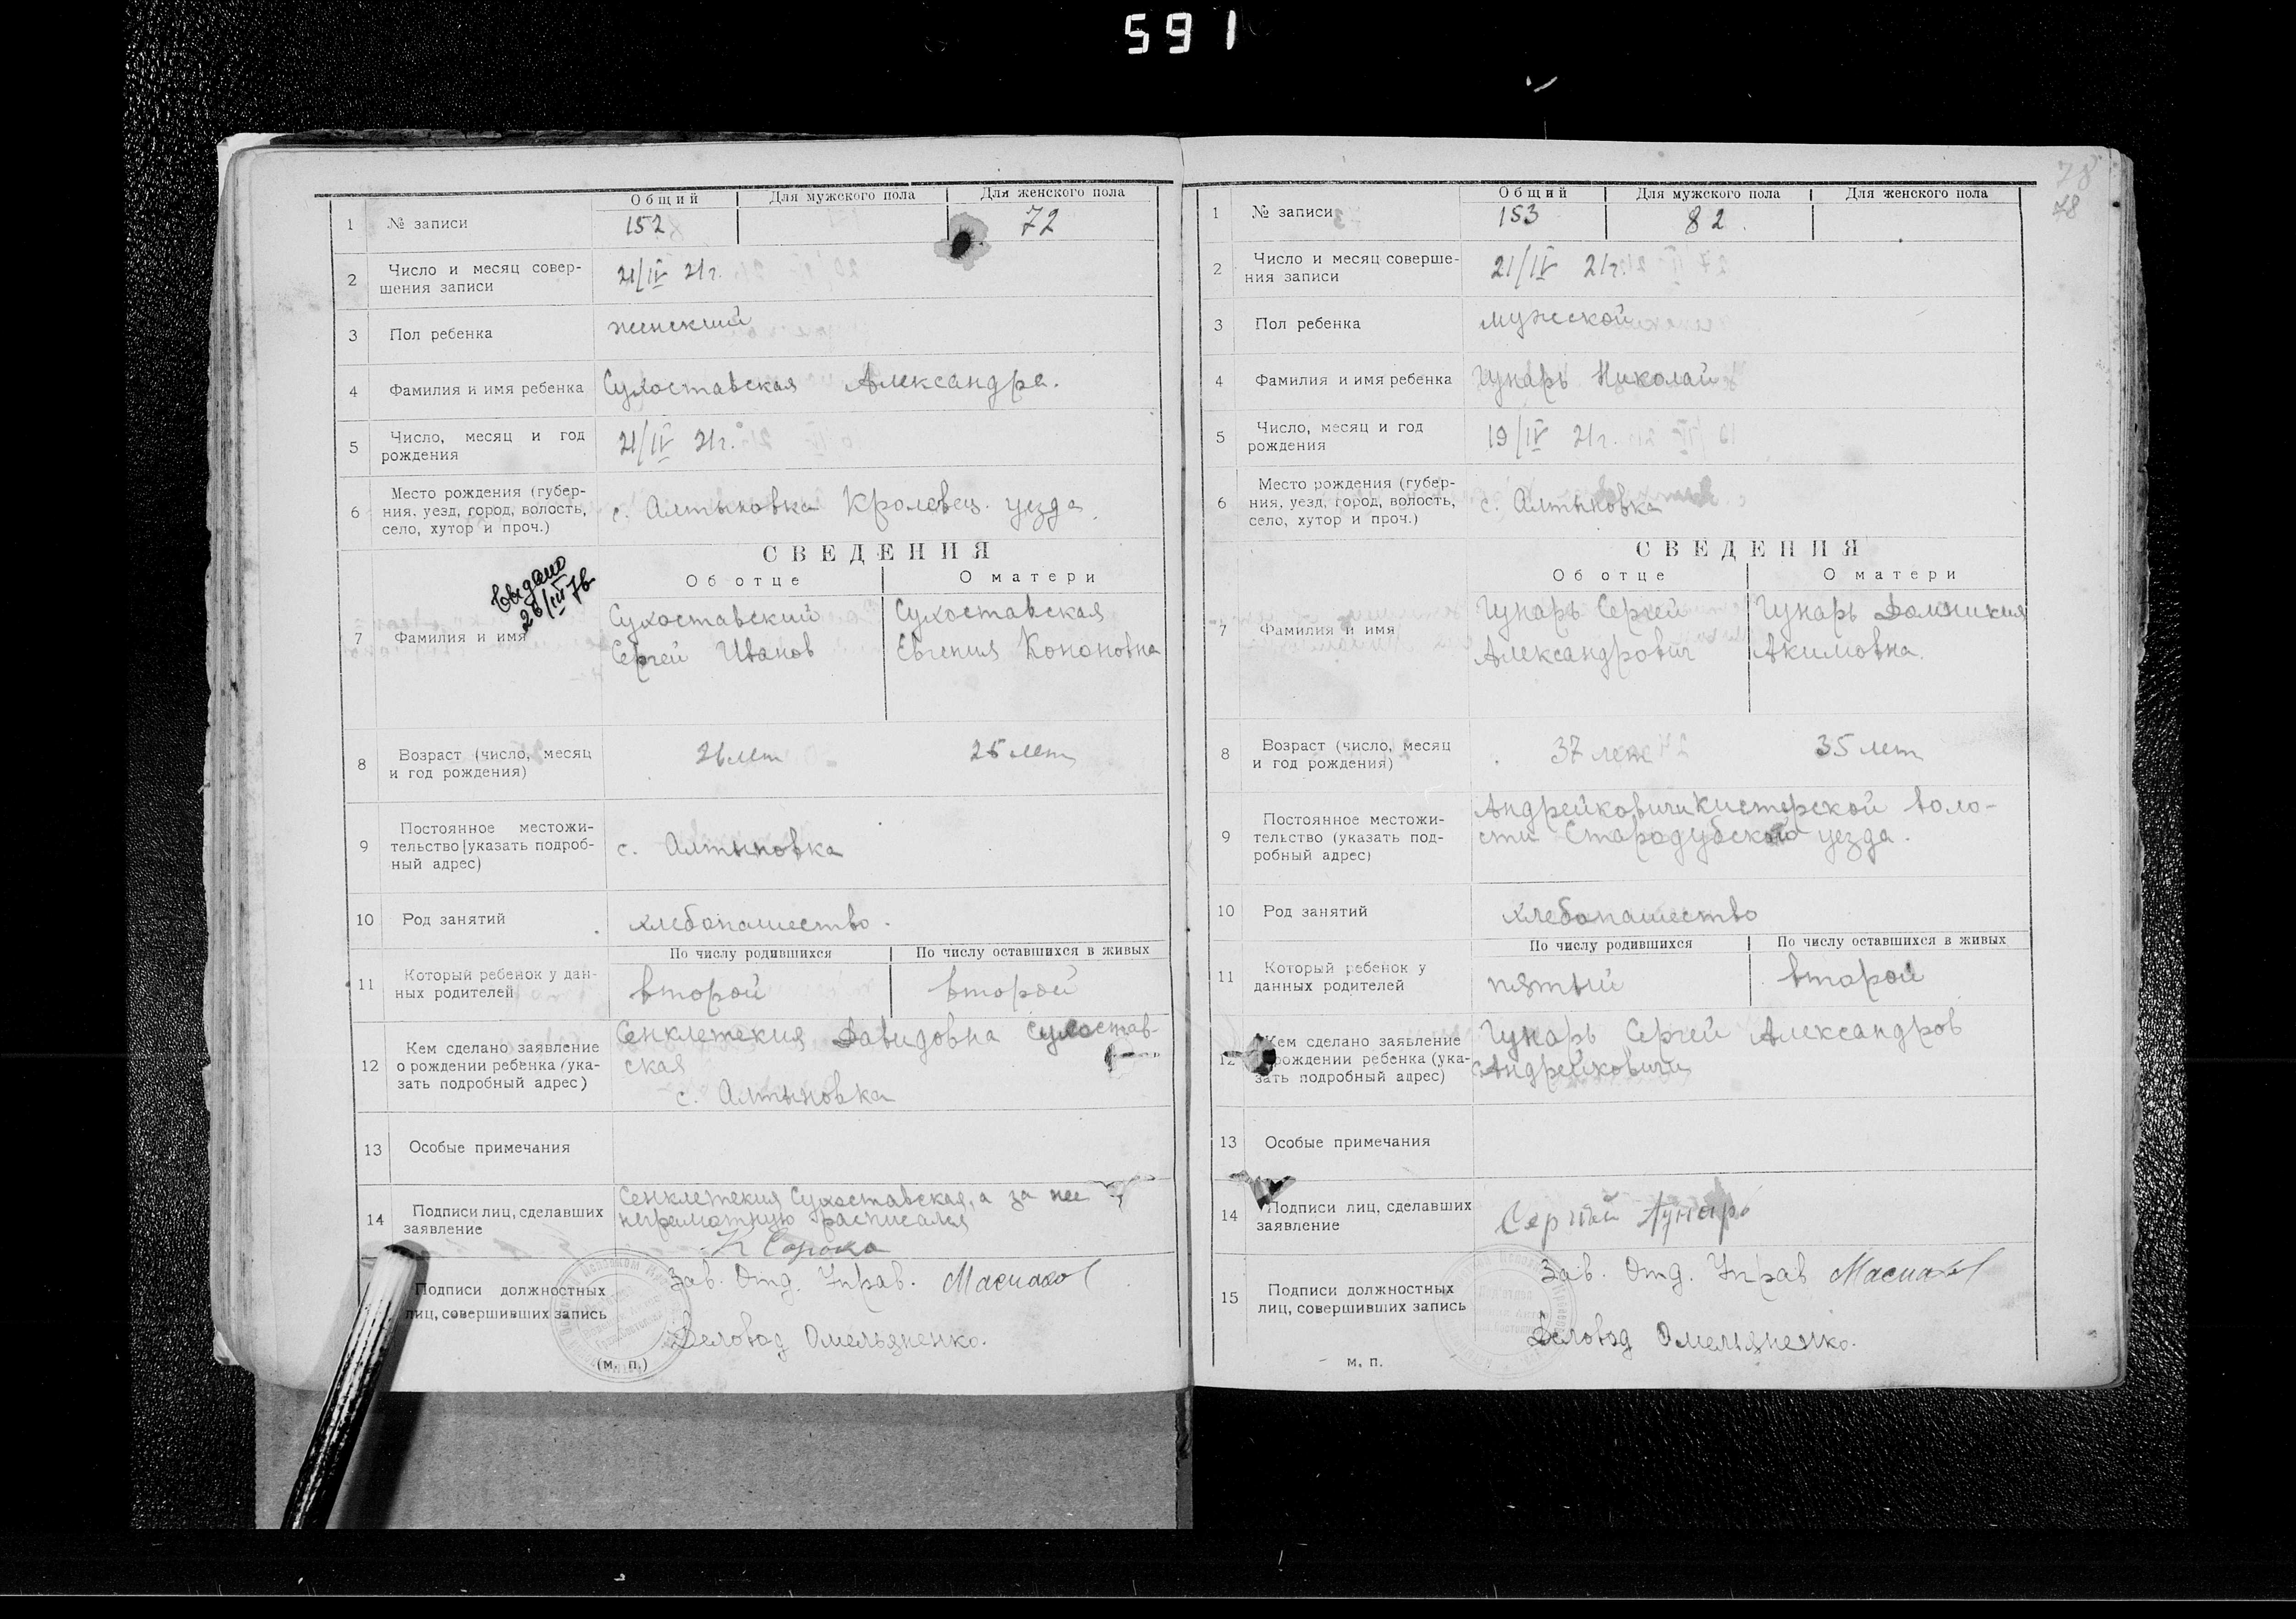 591
Общий Для мужского пола Для женского пола
1 № записи 152 72
2 Число и месяц совер-
шения записи 21/IV 21г.
3 Пол ребенка женский
4 Фамилия и имя ребенка Сухоставская Александра.
5 Число, месяц и год
рождения 21/IV 21г.
6 Место рождения (губер-
ния, уезд, город, волость,
село, хутор и проч.) с. Алтыновка Кролевец. уезда.
СВЕДЕНИЯ
Об отце О матери
Выдано
26/III 76
7 Фамилия и имя
Сухоставский Сухоставская
Сергей Иванов Евгения Кононовна
8 Возраст (число, месяц
и год рождения) 26 лет 25 лет
9 Постоянное местожи-
тельство (указать подроб-
ный адрес) с. Алтыновка
10 Род занятий хлебопашество.
По числу родившихся По числу оставшихся в живых
11 Который ребенок у дан-
ных родителей второй второй
12 Кем сделано заявление
о рождении ребенка (ука-
зать подробный адрес)
Сенклетекия Давидовна Сухостав-
ская
с. Алтыновка
13 Особые примечания
14 Подписи лиц, сделавших
заявление
Сенклетекия Сухоставская, а за нее
неграмотную расписался
К Сорока
Подписи должностных
лиц, совершивших запись
Зав. Отд. Управ.
Деловод Омельяненко.
(м. п.)
78
78
Общий Для мужского пола Для женского пола
1 № записи 153 82.
2 Число и месяц соверше-
ния записи 21/IV 21г.
3 Пол ребенка мужской
4 Фамилия и имя ребенка Гунарь Николай
5 Число, месяц и год
рождения 19/IV 21г.
6 Место рождения (губер-
ния, уезд, город, волость,
село, хутор и проч.) с. Алтыновка
СВЕДЕНИЯ
Об отце О матери
7 Фамилия и имя
Гунарь Сергей Гунарь Домникия
Александрович Акимовна.
8 Возраст (число, месяц
и год рождения) 37 лет 35 лет
9 Постоянное местожи-
тельство (указать под-
робный адрес)
Андрейковичи Кистерской воло-
сти Стародубского уезда.
10 Род занятий хлебопашество
По числу родившихся По числу оставшихся в живых
11 Который ребенок у
данных родителей пятый второй
12 Кем сделано заявление
рождении ребенка (ука-
зать подробный адрес)
Гунарь Сергей Александров
с Андрейковичи
13 Особые примечания
14 Подписи лиц, сделавших
заявление
Сергей Гунарь
15 Подписи должностных
лиц, совершивших запись
Зав. Отд. Управ
Деловод Омельяненко.
м. п.